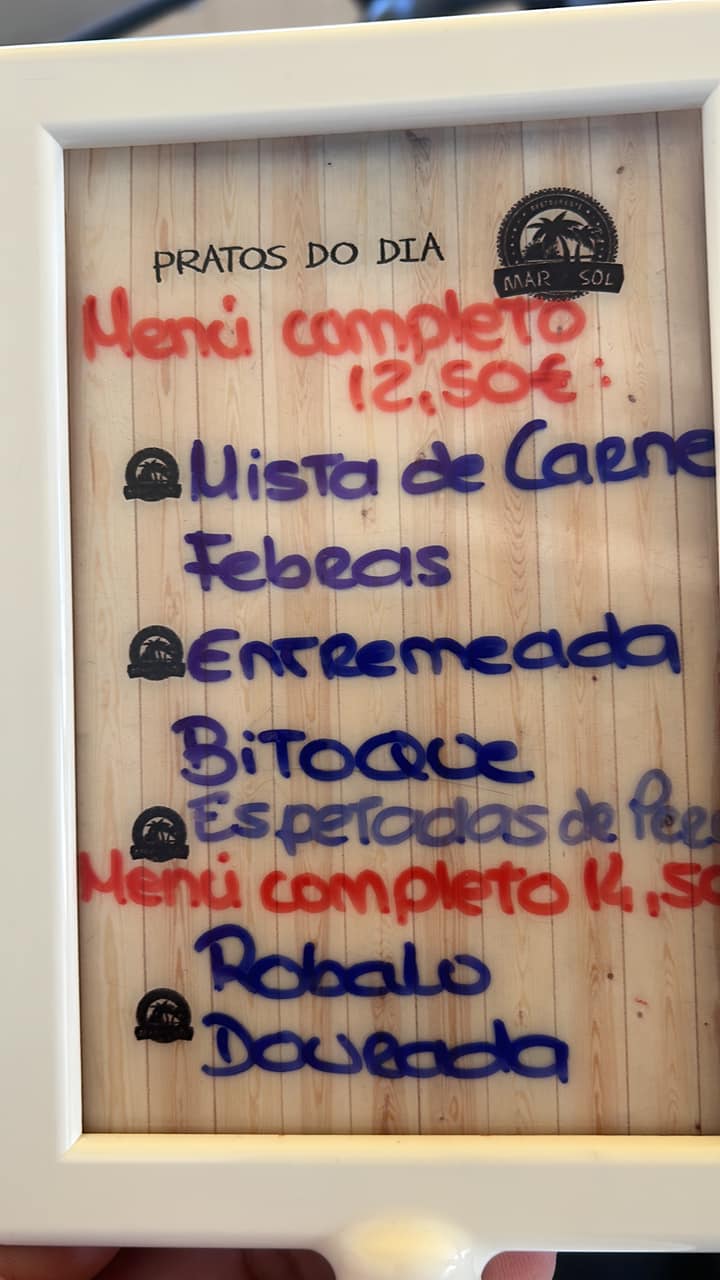 PRATOS DO DIA
RESTAURANTE
MAR SOL
Menú completo
12,50€:
Mista de Carne
Febras
Entremeada
Bitoque
Espetadas de
Menú completo 14,50
Robalo
Dourada